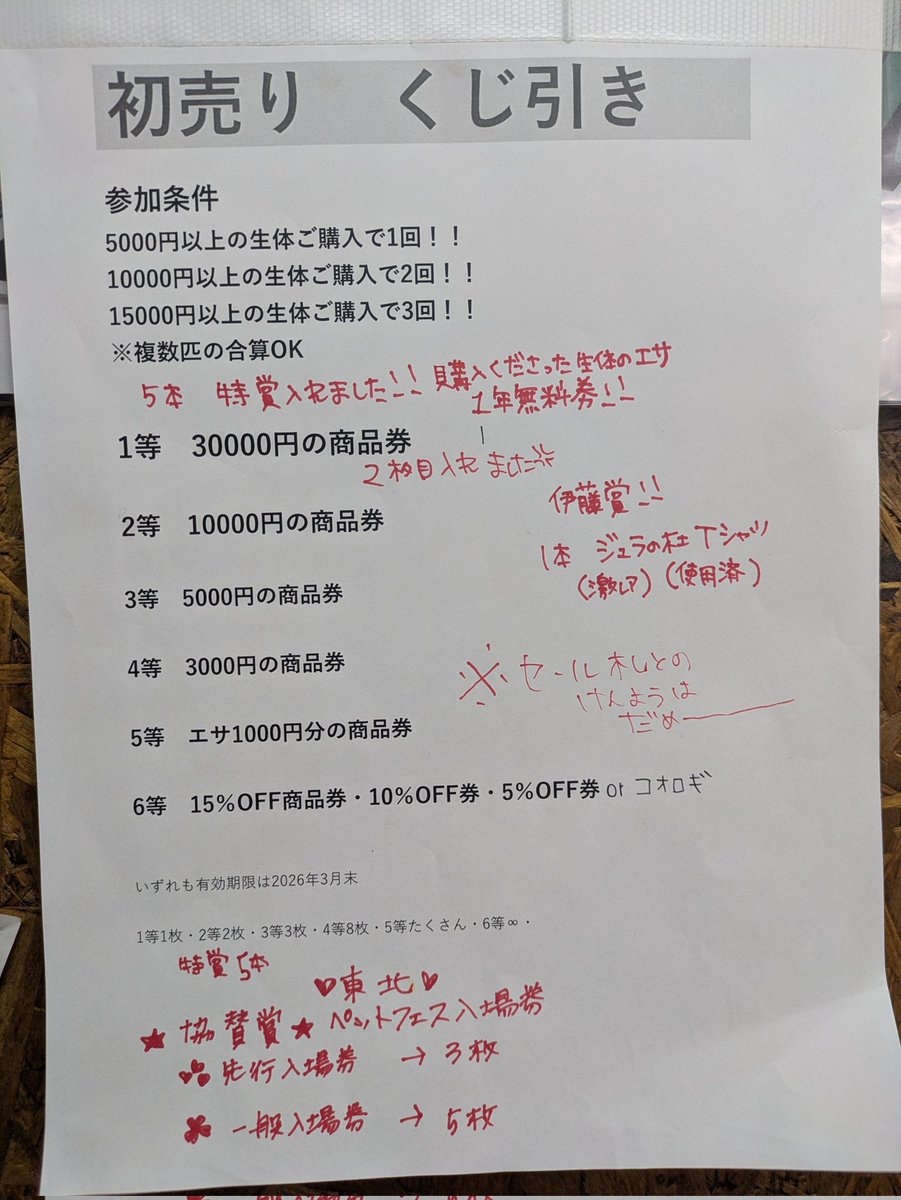 初売り くじ引き
参加条件
5000円以上の生体ご購入で1回！！
10000円以上の生体ご購入で2回！！
15000円以上の生体ご購入で3回！！
※複数匹の合算OK
5本 特賞入れました!! 購入くださった生体のエサ
1年無料券!!
1等 30000円の商品券
2枚目入れました
2等 10000円の商品券
伊藤賞!!
1本 ジュラの杜Tシャツ
(激レア)(使用済)
3等 5000円の商品券
4等 3000円の商品券
※セール札との
けんようは
だめー
5等 エサ1000円分の商品券
6等 15％OFF商品券・10％OFF券・5％OFF券 or コオロギ
いずれも有効期限は2026年3月末
1等1枚・2等2枚・3等3枚・4等8枚・5等たくさん・6等∞・
特賞5本
♥東北♥
★協賛賞★ ペットフェス入場券
先行入場券 → 3枚
一般入場券 → 5枚